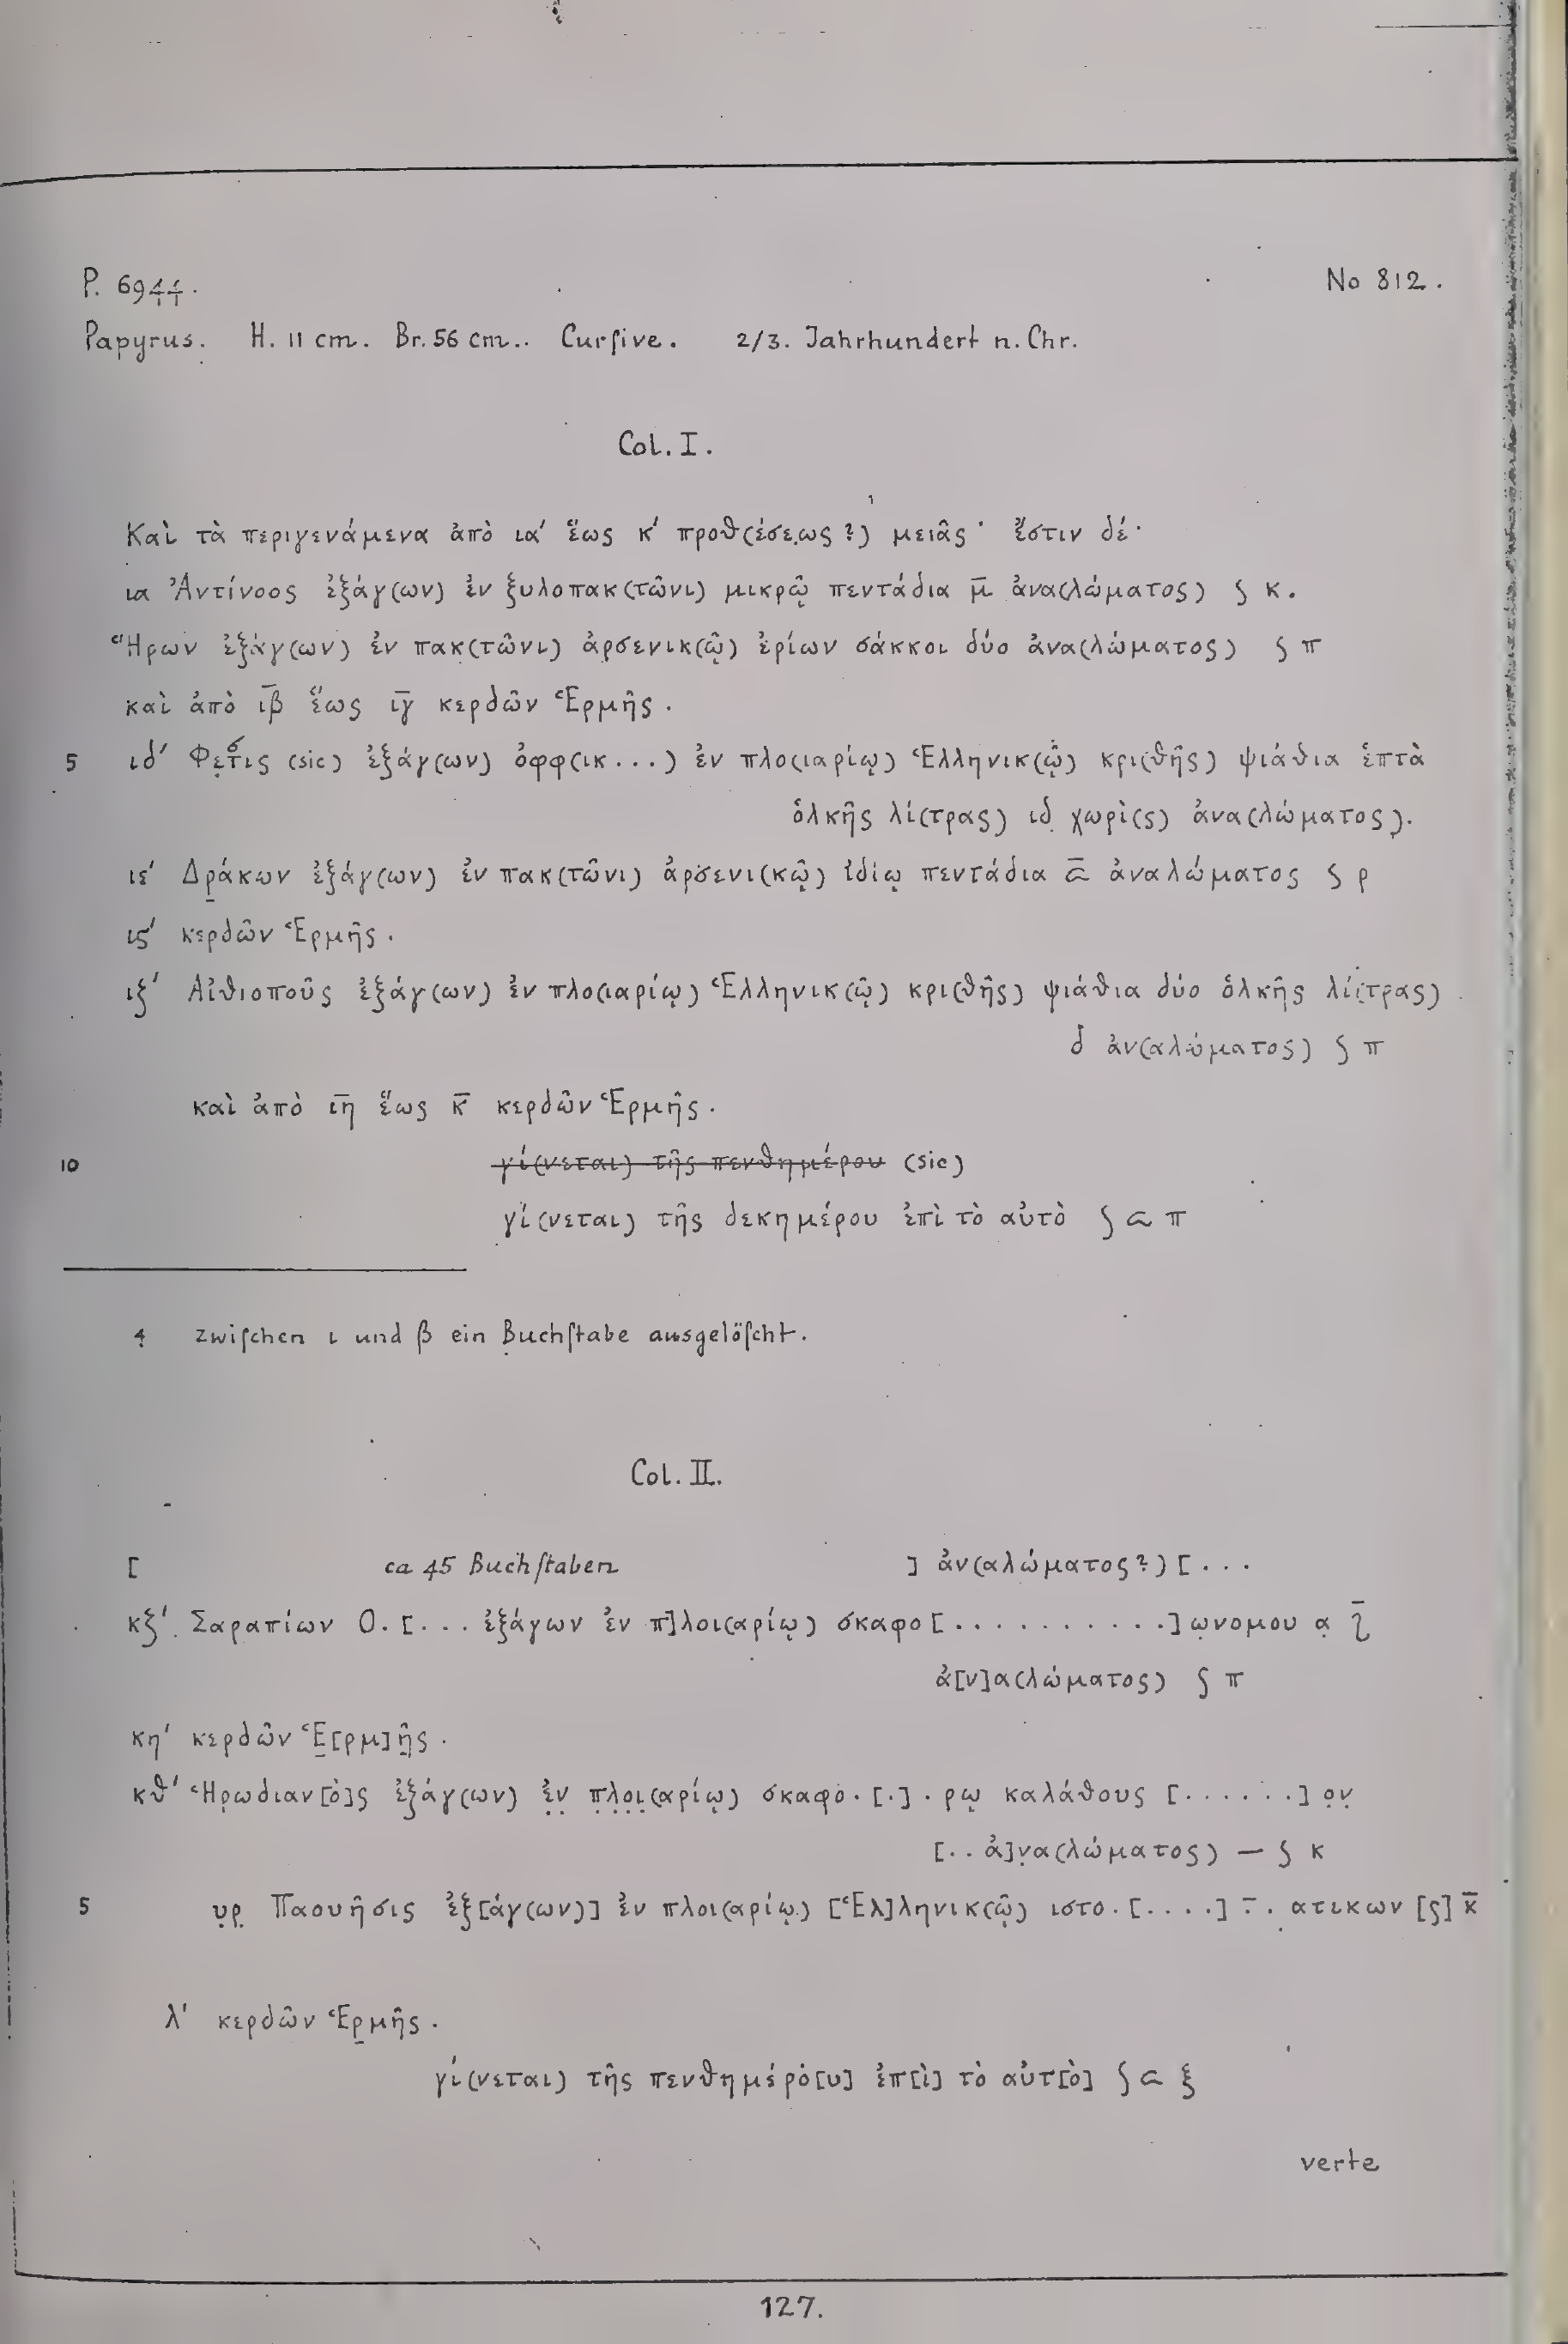 P. 6944.
No 812.
Papyrus. H. 11 cm. Br. 56 cm.. Curſive. 2/3. Jahrhundert n. Chr.
Col. I.
Καὶ τὰ περιγενάμενα ἀπὸ ια´ ἕως κ´ προθ(έσεως?) μειᾶς· ἔστιν δέ·
ια Ἀντίνοος ἐξάγ(ων) ἐν ξυλοπακ(τῶνι) μικρῷ πεντάδια μ̄ ἀνα(λώματος) ϛ κ.
Ἥρων ἐξάγ(ων) ἐν πακ(τῶνι) ἀρσενικ(ῷ) ἐρίων σάκκοι δύο ἀνα(λώματος) ϛ π
καὶ ἀπὸ ῑβ̄ ἕως ῑγ̄ κερδῶν Ἑρμῆς.
5 ιδ´ Φετις (sic) ἐξάγ(ων) ὀφφ(ικ...) ἐν πλο(ιαρίῳ) Ἑλληνικ(ῷ) κρι(θῆς) ψιάθια ἑπτὰ
ὁλκῆς λί(τρας) ιδ χωρὶ(ς) ἀνα(λώματος).
ιε´ Δράκων ἐξάγ(ων) ἐν πακ(τῶνι) ἀρσενι(κῷ) ἰδίῳ πεντάδια σ̄ ἀναλώματος ϛ ρ
ιϛ´ κερδῶν Ἑρμῆς.
ιξ´ Αἰθιοποῦς ἐξάγ(ων) ἐν πλο(ιαρίῳ) Ἑλληνικ(ῷ) κρι(θῆς) ψιάθια δύο ὁλκῆς λί(τρας)
δ ἀν(αλώματος) ϛ π
καὶ ἀπὸ ῑη̄ ἕως κ̄ κερδῶν Ἑρμῆς.
10 γί(νεται) τῆς πενθημέρου (sic)
γί(νεται) τῆς δεκημέρου ἐπὶ τὸ αὐτὸ ϛ σ π
4 zwiſchen ι und β ein Buchſtabe ausgelöſcht.
Col. II.
[ ca 45 Buchſtaben ] ἀν(αλώματος?) [...
κξ´ Σαραπίων Ο.[... ἐξάγων ἐν π]λοι(αρίῳ) σκαφο[..........]ω̣νομου α̣
ἀ[ν]α(λώματος) ϛ π
κη´ κερδῶν Ἑ[ρμ]ῆς.
κθ´ Ἡρωδιαν[ὸ]ς ἐξάγ(ων) ἐ̣ν̣ π̣λ̣ο̣ι̣(αρίῳ) σκαφο.[.].ρῳ καλάθους [......] ο̣ν̣
[..ἀ]ν̣α(λώματος) — ϛ κ
5 υ̣ρ̣ Παουῆσις ἐξ[άγ(ων)] ἐν πλοι(αρίῳ) [Ἑλ]ληνικ(ῷ) ιστο.[....] . . ατικων [ϛ] κ̄
λ´ κερδῶν Ἑρμῆς.
γί(νεται) τῆς πενθημέρο[υ] ἐπ[ὶ] τὸ αὐτ[ὸ] ϛ σ ξ
verte
127.